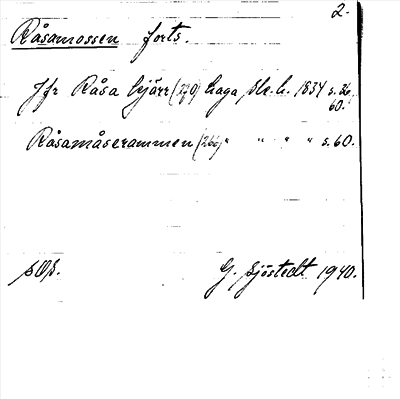 2.
Råsamossen forts.
Jfr Råsa Kjärr (270) Laga sk. h. 1834 s. 26.
60.
Råsamåseraommen (266) " " " " s. 60.
G. Sjöstedt 1940.